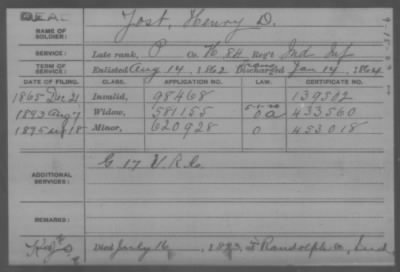 DEAL
NAME OF SOLDIER: Yost, Henry D.
SERVICE: Late rank, P Co. H 84 Reg't Ind Inf
TERM OF SERVICE: Enlisted Aug 14, 1862 Discharged Jan 14, 1864
DATE OF FILING. CLASS. APPLICATION NO. LAW. CERTIFICATE NO.
1865 Dec 21 Invalid, 98468 139502
1893 Aug 7 Widow, 581155 O a 433560
1895 Aug 18 Minor, 620928 O 453018
ADDITIONAL SERVICES: G 17 V.R.C.
REMARKS:
Died July 16, 1893, Randolph Co, Ind